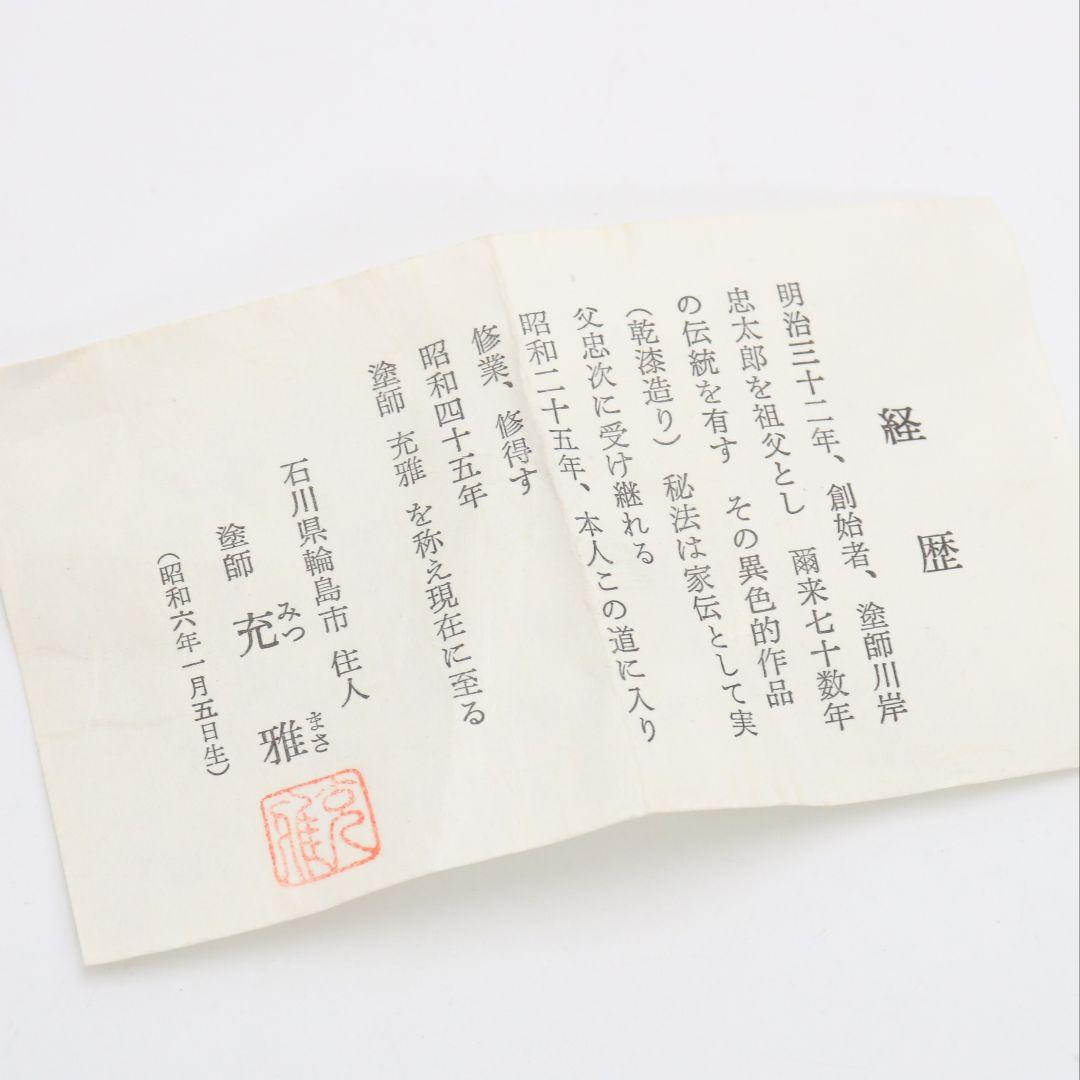 経歴
明治三十二年、創始者、塗師川岸
忠太郎を祖父とし　爾来七十数年
の伝統を有す　その異色的作品
(乾漆造り)　秘法は家伝として実
父忠次に受け継れる
昭和二十五年、本人この道に入り
修業、修得す
昭和四十五年
塗師　充雅　を称え現在に至る
石川県輪島市　住人
塗師　充雅
みつ　まさ
(昭和六年一月五日生)
充雅